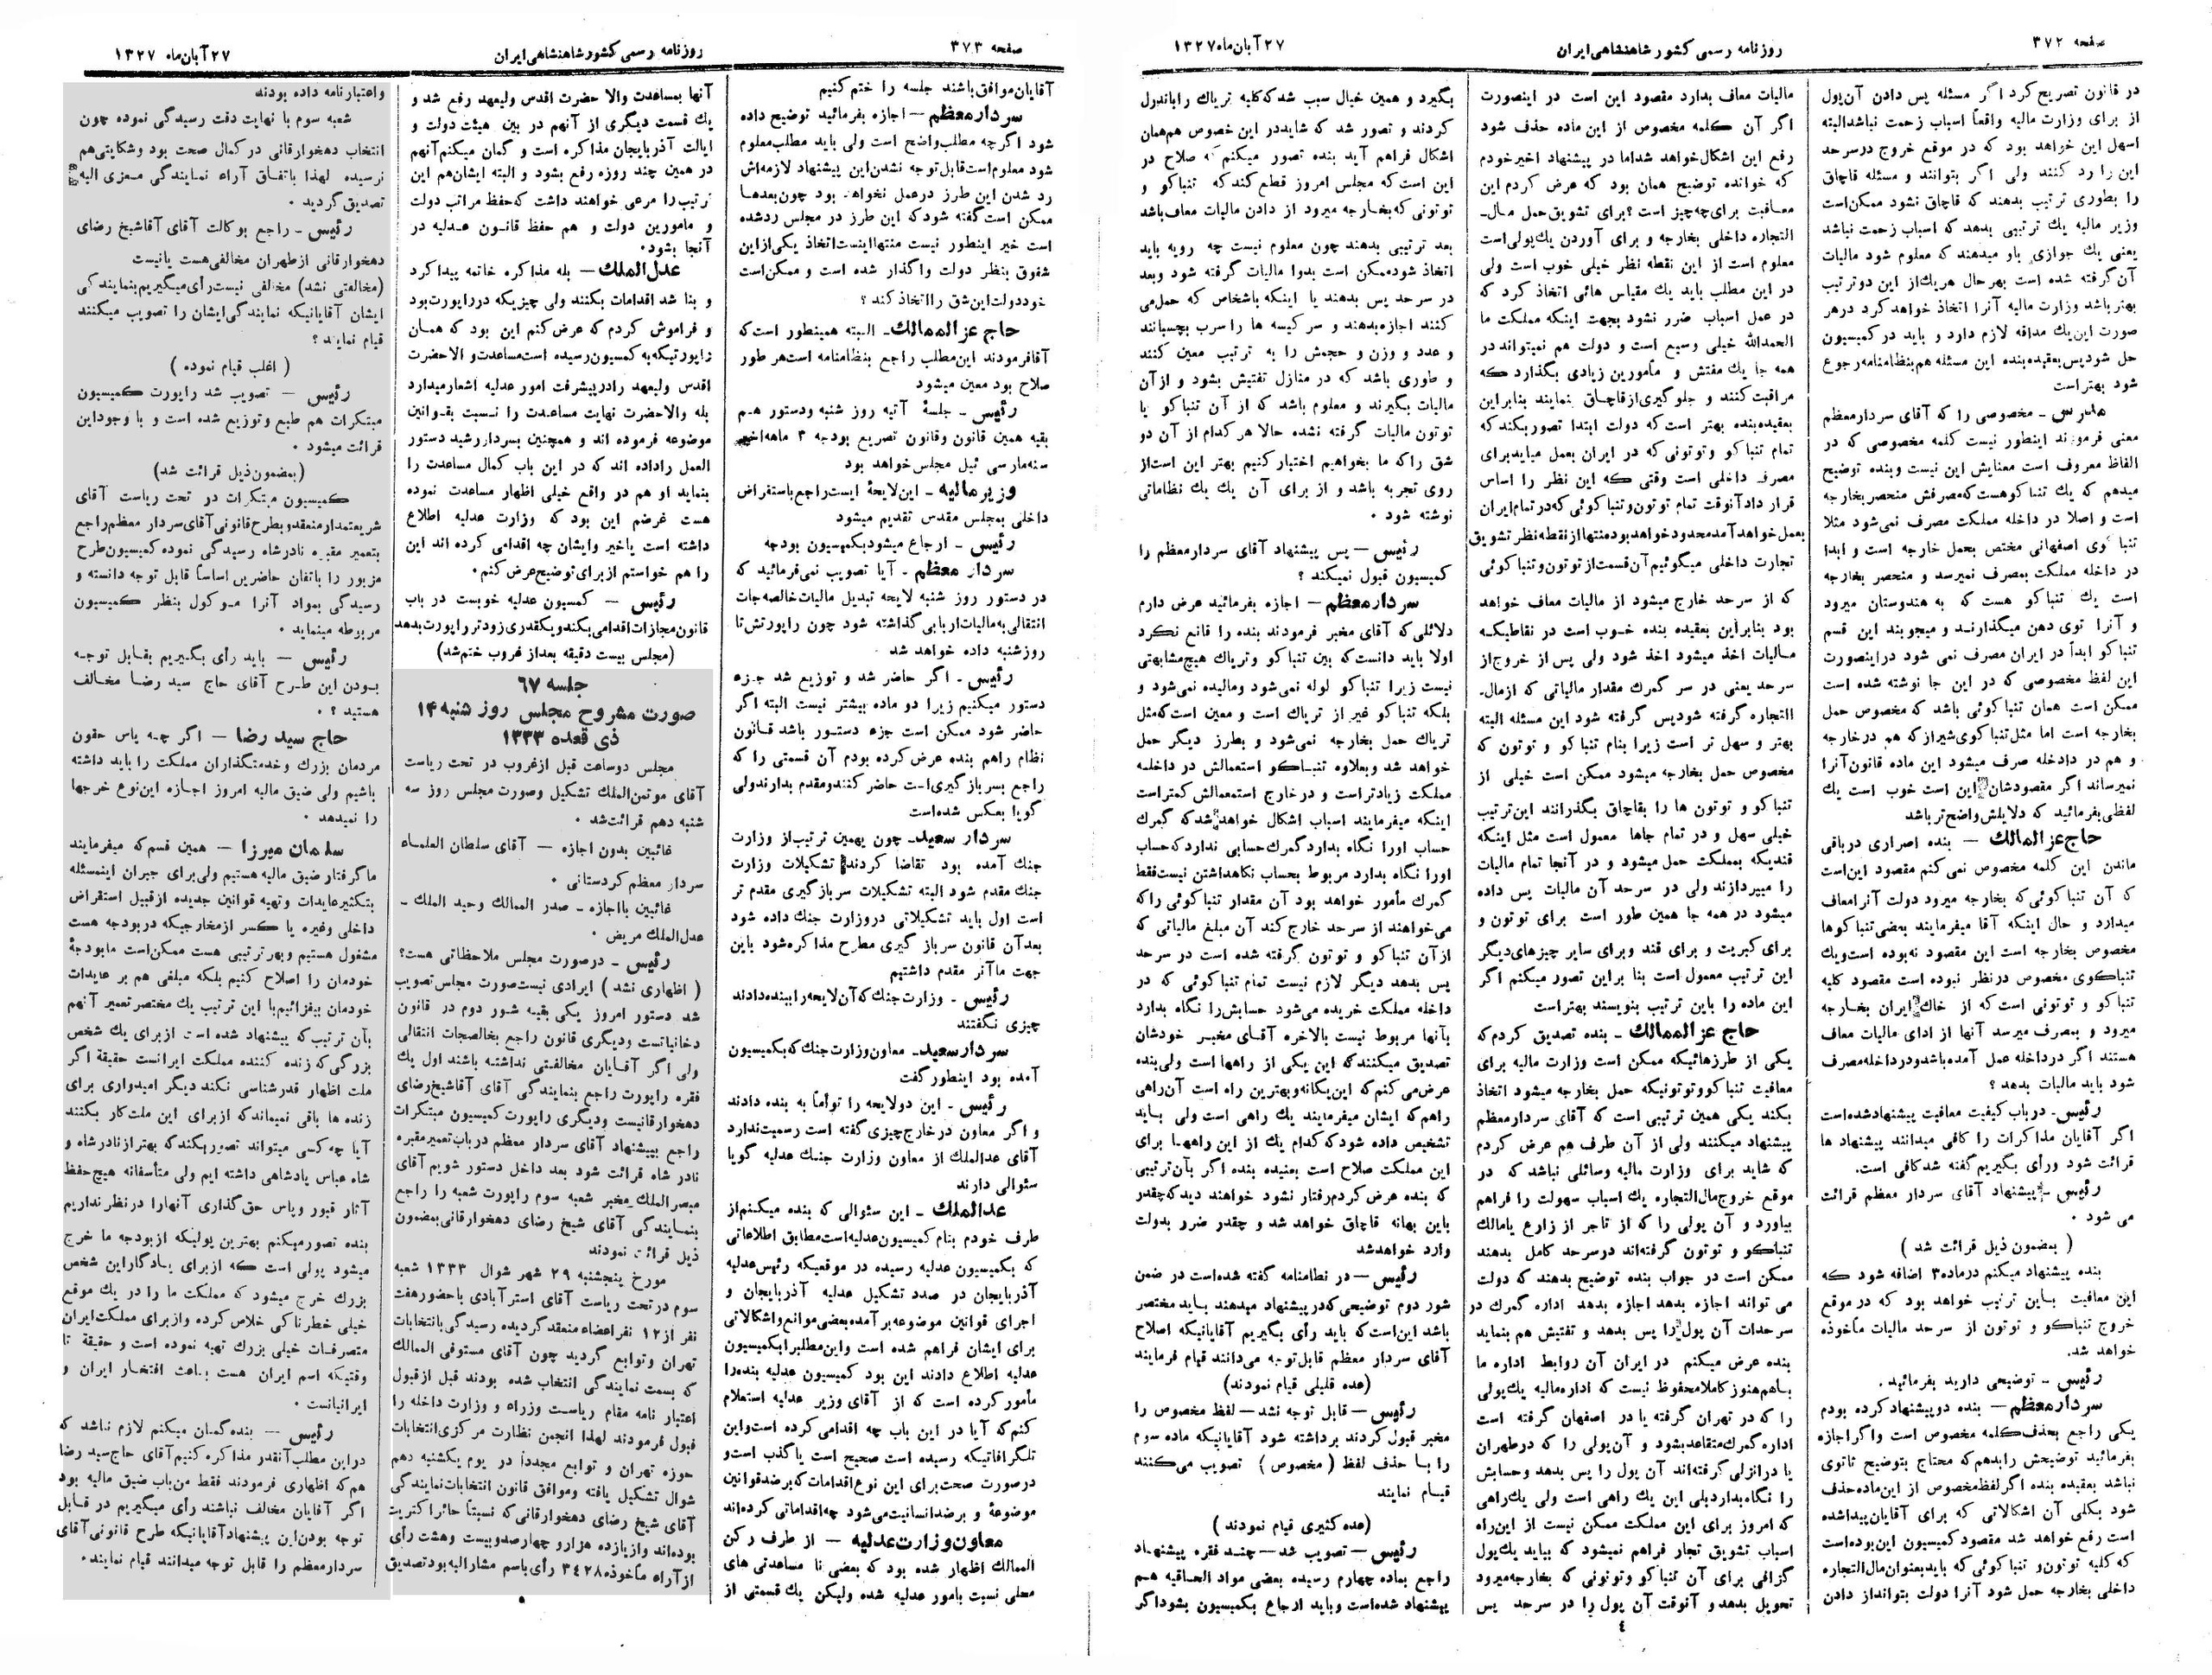 صفحه ۳۷۲
روزنامه رسمی کشور شاهنشاهی ایران
۲۷ آبان‌ماه ۱۳۲۷
در قانون تصریح کرد اگر مسئله پس دادن آن پول
از برای وزارت مالیه واقعاً اسباب زحمت نباشد البته
اسهل این خواهد بود که در موقع خروج در سرحد
این را رد کنند ولی اگر بتوانند و مسئله قاچاق
را بطوری ترتیب بدهند که قاچاق نشود ممکن‌است
وزیر مالیه یك ترتیبی بدهد که اسباب زحمت نباشد
یعنی یك جوازی باو میدهند که معلوم شود مالیات
آن گرفته شده است بهر حال هریك از این دو ترتیب
بهتر باشد وزارت مالیه آنرا اتخاذ خواهد کرد در هر
صورت این یك مداقه لازم دارد و باید در کمیسیون
حل شود پس بعقیده بنده این مسئله هم بنظامنامه رجوع
شود بهتر است
مدرس ـ مخصوصی را که آقای سردار معظم
معنی فرمودند اینطور نیست کلمه مخصوصی که در
الفاظ معروف است معنایش این نیست و بنده توضیح
میدهم که یك تنباکو هست که مصرفش منحصر بخارجه
است و اصلا در داخله مملکت مصرف نمی‌شود مثلا
تنباکوی اصفهانی مختص بحمل خارجه است و ابدا
در داخله مملکت بمصرف نمیرسد و منحصر بخارجه
است یك تنباکو هست که به هندوستان میرود
و آنرا توی دهن میگذارند و میجوند این قسم
تنباکو ابداً در ایران مصرف نمی شود در اینصورت
این لفظ مخصوصی که در این جا نوشته شده است
ممکن است همان تنباکوئی باشد که مخصوص حمل
بخارجه است اما مثل تنباکوی شیراز که هم در خارجه
و هم در دادخله صرف میشود این ماده قانون آنرا
نمیرساند اگر مقصودشان این است خوب است یك
لفظی بفرمائید که دلایلش واضح‌تر باشد
حاج عز الممالك — بنده اصراری در باقی
ماندن این کلمه مخصوص نمی کنم مقصود این‌است
که آن تنباکوئی که بخارجه میرود دولت آنرا معاف
میدارد و حال اینکه آقا میفرمایند بعضی تنباکوها
مخصوص بخارجه است این مقصود نه‌بوده است و یك
تنباکوی مخصوص در نظر نبوده است مقصود کلیه
تنباکو و توتونی است که از خاك ایران بخارجه
میرود و بمصرف میرسد آنها از ادای مالیات معاف
هستند اگر در داخله عمل آمده باشد و در داخله مصرف
شود باید مالیات بدهد؟
رئیس ـ در باب کیفیت معافیت پیشنهاد شده‌است
اگر آقایان مذاکرات را کافی میدانند پیشنهاد ها
قرائت شود و رأی بگیریم گفته شد کافی است.
رئیس ـ پیشنهاد آقای سردار معظم قرائت
می شود .
( بمضمون ذیل قرائت شد )
بنده پیشنهاد میکنم در ماده ۳ اضافه شود که
این معافیت باین ترتیب خواهد بود که در موقع
خروج تنباکو و توتون از سرحد مالیات مأخوذه
خواهد شد.
رئیس ـ توضیحی دارید بفرمائید.
سردار معظم — بنده دو پیشنهاد کرده بودم
یکی راجع بحذف کلمه مخصوص است و اگر اجازه
بفرمائید توضیحش را بدهم که محتاج بتوضیح ثانوی
نباشد بعقیده بنده اگر لفظ مخصوص از این ماده حذف
شود بکلی آن اشکالاتی که برای آقایان پیدا شده
است رفع خواهد شد مقصود کمیسیون این بوده‌است
که کلیه توتون و تنباکوئی که باید بعنوان مال‌التجاره
داخلی بخارجه حمل شود آنرا دولت بتواند از دادن
مالیات معاف بدارد مقصود این است در اینصورت
اگر آن کلمه مخصوص از این ماده حذف شود
رفع این اشکال خواهد شد اما در پیشنهاد اخیر خودم
که خوانده توضیح همان بود که عرض کردم این
معافیت برای چه چیز است ؟ برای تشویق حمل مال‌ـ
التجاره داخلی بخارجه و برای آوردن یك پولی‌است
معلوم است از این نقطه نظر خیلی خوب است ولی
در این مطلب باید یك مقیاس هائی اتخاذ کرد که
در عمل اسباب ضرر نشود بجهت اینکه مملکت ما
الحمدالله خیلی وسیع است و دولت هم نمیتواند در
همه جا یك مفتش و مأمورین زیادی بگذارد که
مراقبت کنند و جلوگیری از قاچاق نمایند بنابراین
بعقیده بنده بهتر است که دولت ابتدا تصور بکند که
تمام تنباکو و توتونی که در ایران بعمل میاید برای
مصرف داخلی است وقتی که این نظر را اساس
قرار داد آنوقت تمام توتون و تنباکوئی که در تمام ایران
بعمل خواهد آمد محدود خواهد بود منتها از نقطه نظر تشویق
تجارت داخلی میگوئیم آن قسمت از توتون و تنباکوئی
که از سرحد خارج میشود از مالیات معاف خواهد
بود بنابراین بعقیده بنده خوب است در نقاطیکه
مالیات اخذ میشود اخذ شود ولی پس از خروج از
سرحد یعنی در سر گمرك مقدار مالیاتی که از مال‌ـ
التجاره گرفته شود پس گرفته شود این مسئله البته
بهتر و سهل تر است زیرا بنام تنباکو و توتون که
مخصوص حمل بخارجه میشود ممکن است خیلی از
تنباکو و توتون ها را بقاچاق بگذرانند این ترتیب
خیلی سهل و در تمام جاها معمول است مثل اینکه
قندیکه بمملکت حمل میشود و در آنجا تمام مالیات
را میپردازند ولی در سرحد آن مالیات پس داده
میشود در همه جا همین طور است برای توتون و
برای کبریت و برای قند و برای سایر چیزهای دیگر
این ترتیب معمول است بنا براین تصور میکنم اگر
این ماده را باین ترتیب بنویسند بهتر است
حاج عز الممالك ـ بنده تصدیق کردم که
یکی از طرزهائیکه ممکن است وزارت مالیه برای
معافیت تنباکو و توتونیکه حمل بخارجه میشود اتخاذ
بکند یکی همین ترتیبی است که آقای سردار معظم
پیشنهاد میکنند ولی از آن طرف هم عرض کردم
که شاید برای وزارت مالیه وسائلی نباشد که در
موقع خروج مال‌التجاره یك اسباب سهولت را فراهم
بیاورد و آن پولی را که از تاجر از زارع یا مالك
تنباکو و توتون گرفته‌اند در سرحد کامل بدهند
ممکن است در جواب بنده توضیح بدهند که دولت
می تواند اجازه بدهد اجازه بدهد اداره گمرك در
سرحدات آن پول را پس بدهد و تفتیش هم بنماید
بنده عرض میکنم در ایران آن روابط اداره ما
باهم هنوز کاملا محفوظ نیست که اداره مالیه یك پولی
را که در تهران گرفته یا در اصفهان گرفته است
اداره گمرك متقاعد بشود و آن پولی را که در طهران
یا در انزلی گرفته‌اند آن پول را پس بدهد و حسابش
را نگاه بدارد بلی این یك راهی است ولی یك راهی
که امروز برای این مملکت ممکن نیست از این راه
اسباب تشویق تجار فراهم نمیشود که بیاید یك پول
گزافی برای آن تنباکو و توتونی که بخارجه میرود
تحویل بدهد و آنوقت آن پول را در سرحد پس
بگیرد و همین خیال سبب شد که کلیه تریاك را باندرل
کردند و تصور شد که شاید در این خصوص هم همان
اشکال فراهم آید بنده تصور میکنم که صلاح در
این است که مجلس امروز قطع کند که تنباکو و
توتونی که بخارجه میرود از دادن مالیات معاف باشد
بعد ترتیبی بدهند چون معلوم نیست چه رویه باید
اتخاذ شود ممکن است بدوا مالیات گرفته شود و بعد
در سرحد پس بدهند یا اینکه باشخاص که حمل می
کنند اجازه بدهند و سر کیسه ها را سرب بچسبانند
و عدد و وزن و حجمش را به ترتیب معین کنند
و طوری باشد که در منازل تفتیش بشود و از آن
مالیات بگیرند و معلوم باشد که از آن تنباکو یا
توتون مالیات گرفته نشده حالا هر کدام از آن دو
شق را که ما بخواهیم اختیار کنیم بهتر این است از
روی تجربه باشد و از برای آن یك یك نظاماتی
نوشته شود .
رئیس — پس پیشنهاد آقای سردار معظم را
کمیسیون قبول نمیکند ؟
سردار معظم — اجازه بفرمائید عرض دارم
دلائلی که آقای مخبر فرمودند بنده را قانع نکرد
اولا باید دانست که بین تنباکو و تریاك هیچ مشابهتی
نیست زیرا تنباکو لوله نمی‌شود و مالیده نمی‌شود و
بلکه تنباکو غیر از تریاك است و معین است که مثل
تریاك حمل بخارجه نمی‌شود و بطرز دیگر حمل
خواهد شد و بعلاوه تنباکو استعمالش در داخله
مملکت زیادتر است و در خارج استعمالش کمتر است
اینکه میفرمایند اسباب اشکال خواهد شد که گمرك
حساب اورا نگاه بدارد گمرك حسابی ندارد که حساب
اورا نگاه بدارد مربوط بحساب نگاهداشتن نیست فقط
گمرك مأمور خواهد بود آن مقدار تنباکوئی را که
می‌خواهند از سرحد خارج کند آن مبلغ مالیاتی که
از آن تنباکو و توتون گرفته شده است در سرحد
پس بدهد دیگر لازم نیست تمام تنباکوئی که در
داخله مملکت خریده می‌شود حسابش را نگاه بدارد
بآنها مربوط نیست بالاخره آقای مخبر خودشان
تصدیق میکنند که این یکی از راهها است ولی بنده
عرض می کنم که این یگانه و بهترین راه است آن راهی
راهم که ایشان میفرمایند یك راهی است ولی باید
تشخیص داده شود که کدام یك از این راهها برای
این مملکت صلاح است بعقیده بنده اگر بآن ترتیبی
که بنده عرض کردم رفتار نشود خواهند دید که چقدر
باین بهانه قاچاق خواهد شد و چقدر ضرر بدولت
وارد خواهد شد
رئیس — در نظامنامه گفته شده‌است در ضمن
شور دوم توضیحی که در پیشنهاد میدهند باید مختصر
باشد این‌است که باید رأی بگیریم آقایانیکه اصلاح
آقای سردار معظم قابل توجه می‌دانند قیام فرمایند
(عده قلیلی قیام نمودند)
رئیس — قابل توجه نشد — لفظ مخصوص را
مخبر قبول کردند برداشته شود آقایانیکه ماده سوم
را با حذف لفظ ( مخصوص ) تصویب می‌کنند
قیام نمایند
(عده کثیری قیام نمودند )
رئیس — تصویب شد — چند فقره پیشنهاد
راجع بماده چهارم رسیده بعضی مواد الحاقیه هم
پیشنهاد شده‌است و باید ارجاع بکمیسیون بشود اگر
٤
صفحه ۳۷۳
روزنامه رسمی کشور شاهنشاهی ایران
۲۷ آبان‌ماه ۱۳۲۷
آقایان موافق باشند جلسه را ختم کنیم
سردار معظم — اجازه بفرمائید توضیح داده
شود اگر چه مطلب واضح است ولی باید مطلب معلوم
شود معلوم است قابل توجه نشدن این پیشنهاد لازمه‌اش
رد شدن این طرز در عمل نخواهد بود چون بعدها
ممکن است گفته شود که این طرز در مجلس رد شده
است خیر اینطور نیست منتها اینست اتخاذ یکی از این
شقوق بنظر دولت واگذار شده است و ممکن است
خود دولت این شق را اتخاذ کند ؟
حاج عز الممالك ـ البته همینطور است که
آقا فرمودند این مطلب راجع بنظامنامه است هر طور
صلاح بود معین میشود
رئیس ـ جلسهٔ آتیه روز شنبه و دستور هم
بقیه همین قانون و قانون تصریح بودجه ۳ ماهه اخیر
سنه مارسی ئیل مجلس خواهد بود
وزیر مالیه ـ این لایحهٔ ایست راجع باستقراض
داخلی بمجلس مقدس تقدیم میشود
رئیس ـ ارجاع میشود بکمیسیون بودجه
سردار معظم ـ آیا تصویب نمی‌فرمائید که
در دستور روز شنبه لایحه تبدیل مالیات خالصه‌جات
انتقالی به مالیات اربابی گذاشته شود چون راپورتش تا
روز شنبه داده خواهد شد
رئیس ـ اگر حاضر شد و توزیع شد جزء
دستور میکنیم زیرا دو ماده بیشتر نیست البته اگر
حاضر شود ممکن است جزء دستور باشد قانون
نظام راهم بنده عرض کرده بودم آن قسمتی را که
راجع بسرباز گیری است حاضر کنند و مقدم بدارند ولی
گویا بعکس شده‌است
سردار سعید ـ چون بهمین ترتیب از وزارت
جنك آمده بود تقاضا کردند تشکیلات وزارت
جنك مقدم شود البته تشکیلات سرباز گیری مقدم تر
است اول باید تشکیلاتی در وزارت جنك داده شود
بعد آن قانون سرباز گیری مطرح مذاکره شود باین
جهت ما آنر مقدم داشتیم
رئیس ـ وزارت جنك که آن لایحه را ببنده دادند
چیزی نگفتند
سردار سعید ـ معاون وزارت جنك که بکمیسیون
آمده بود اینطور گفت
رئیس ـ این دو لایحه را توأماً به بنده دادند
و اگر معاون در خارج چیزی گفته است رسمیت ندارد
آقای عدالملك از معاون وزارت جنك عدلیه گویا
سئوالی دارند
عدالملك ـ این سئوالی که بنده میکنم از
طرف خودم بنام کمیسیون عدلیه است مطابق اطلاعاتی
که بکمیسیون عدلیه رسیده در موقعیکه رئیس عدلیه
آذربایجان در صدد تشکیل عدلیه آذربایجان و
اجرای قوانین موضوعه بر آمده بعضی موانع و اشکالاتی
برای ایشان فراهم شده است و این مطلب را بکمیسیون
عدلیه اطلاع دادند این بود کمیسیون عدلیه بنده را
مأمور کرده است که از آقای وزیر عدلیه استعلام
کنم که آیا در این باب چه اقدامی کرده است و این
تلگرافاتیکه رسیده است صحیح است یا کذب است و
در صورت صحت برای این نوع اقدامات که بر ضد قوانین
موضوعهٔ و بر ضد انسانیت می‌شود چه اقداماتی کرده‌اند
معاون وزارت عدلیه — از طرف رکن
الممالك اظهار شده بود که بعضی نا مساعدتی های
محلی نسبت بامور عدلیه شده ولیکن یك قسمتی از
آنها بمساعدت والا حضرت اقدس ولیعهد رفع شد و
یك قسمت دیگری از آنهم در بین هیئت دولت و
ایالت آذربایجان مذاکره است و گمان میکنم آنهم
در همین چند روزه رفع بشود و البته ایشان هم این
ترتیب را مرعی خواهند داشت که حفظ مراتب دولت
و مامورین دولت و هم حفظ قانون عدلیه در
آنجا بشود.
عدل‌الملك — بله مذاکره خاتمه پیدا کرد
و بنا شد اقدامات بکنند ولی چیزیکه در راپورت بود
و فراموش کردم که عرض کنم این بود که همان
راپورتیکه به کمیسیون رسیده است مساعدت والا حضرت
اقدس ولیعهد را در پیشرفت امور عدلیه اشعار میدارد
بله والاحضرت نهایت مساعدت را نسبت بقوانین
موضوعه فرموده اند و همچنین بسردار رشید دستور
العمل را داده اند که در این باب کمال مساعدت را
بنماید او هم در واقع خیلی اظهار مساعدت نموده
هست غرضم این بود که وزارت عدلیه اطلاع
داشته است یا خیر و ایشان چه اقدامی کرده اند این
را هم خواستم از برای توضیح عرض کنم.
رئیس — کمسیون عدلیه خوبست در باب
قانون مجازات اقدامی بکند و یکقدری زودتر راپورت بدهد
(مجلس بیست دقیقه بعد از غروب ختم شد)
جلسه ۶۷
صورت مشروح مجلس روز شنبه ۱۴
ذی قعده ۱۳۳۳
مجلس دو ساعت قبل از غروب در تحت ریاست
آقای موتمن‌الملك تشکیل و صورت مجلس روز سه
شنبه دهم قرائت شد .
غائبین بدون اجازه — آقای سلطان العلماء
سردار معظم کردستانی .
غائبین با اجازه ـ صدر الممالك وحید الملك ـ
عدل‌الملك مریض .
رئیس ـ در صورت مجلس ملاحظاتی هست؟
( اظهاری نشد ) ایرادی نیست صورت مجلس تصویب
شد دستور امروز یکی بقیه شور دوم در قانون
دخانیاتست و دیگری قانون راجع بخالصجات انتقالی
ولی اگر آقایان مخالفتی نداشته باشند اول یك
فقره راپورت راجع بنمایندگی آقای آقاشیخ رضای
دهخوارقانیست و دیگری راپورت کمیسیون مبتکرات
راجع بپیشنهاد آقای سردار معظم در باب تعمیر مقبره
نادر شاه قرائت شود بعد داخل دستور شویم آقای
مبصر الملك مخبر شعبه سوم راپورت شعبه را راجع
بنمایندگی آقای شیخ رضای دهخوارقانی بمضمون
ذیل قرائت نمودند
مورخ پنجشنبه ۲۹ شهر شوال ۱۳۳۳ شعبه
سوم در تحت ریاست آقای استرآبادی با حضور هفت
نفر از ۱۲ نفر اعضاء منعقد گردیده رسیدگی بانتخابات
تهران و توابع گردید چون آقای مستوفی الممالك
که بسمت نمایندگی انتخاب شده بودند قبل از قبول
اعتبار نامه مقام ریاست وزراء و وزارت داخله را
قبول فرمودند لهذا انجمن نظارت مرکزی انتخابات
حوزه تهران و توابع مجدداً در یوم یکشنبه دهم
شوال تشکیل یافته و موافق قانون انتخابات نمایندگی
آقای شیخ رضای دهخوارقانی که نسبتاً حائز اکثریت
بوده‌اند و از یازده هزار و چهار صد و بیست و هشت رأی
از آراء مأخوذه ۳٤۲۸ رأی باسم مشارالیه بود تصدیق
و اعتبارنامه داده بودند
شعبه سوم با نهایت دقت رسیدگی نموده چون
انتخاب دهخوارقانی در کمال صحت بود و شکایتی هم
نرسیده لهذا باتفاق آراء نمایندگی معزی الیه
تصدیق گردید .
رئیس ـ راجع بوکالت آقای آقاشیخ رضای
دهخوارقانی از طهران مخالفی هست یا نیست
(مخالفتی نشد) مخالفی نیست رأی میگیریم بنمایندگی
ایشان آقایانیکه نمایندگی ایشان را تصویب میکنند
قیام نمایند ؟
( اغلب قیام نموده )
رئیس — تصویب شد راپورت کمیسیون
مبتکرات هم طبع و توزیع شده است و با وجود این
قرائت میشود .
(بمضمون ذیل قرائت شد)
کمیسیون مبتکرات در تحت ریاست آقای
شریعتمدار منعقد و بطرح قانونی آقای سردار معظم راجع
بتعمیر مقبره نادر شاه رسیدگی نموده کمیسیون طرح
مزبور را باتفاق حاضرین اساساً قابل توجه دانسته و
رسیدگی بمواد آنرا موکول بنظر کمیسیون
مربوطه مینماید .
رئیس — باید رأی بگیریم بقابل توجه
بودن این طرح آقای حاج سید رضا مخالف
هستید ؟ .
حاج سید رضا — اگر چه پاس حقون
مردمان بزرك و خدمتگذاران مملکت را باید داشته
باشیم ولی ضیق مالیه امروز اجازه این نوع خرجها
را نمیدهد .
سلمان میرزا — همین قسم که میفرمایند
ما گرفتار ضیق مالیه هستیم ولی برای جبران اینمسئله
بتکثیر عایدات و تهیه قوانین جدیده از قبیل استقراض
داخلی و غیره یا کسر از مخارجیکه در بودجه هست
مشغول هستیم و بهر ترتیبی هست ممکن است ما بودجهٔ
خودمان را اصلاح کنیم بلکه مبلغی هم بر عایدات
خودمان بیفزائیم با این ترتیب یك مختصر تعمیر آنهم
بآن ترتیب که پیشنهاد شده است از برای یك شخص
بزرگی که زنده کننده مملکت ایرانست حقیقة اگر
ملت اظهار قدرشناسی نکند دیگر امیدواری برای
زنده ها باقی نمیماند که از برای این ملت کار بکنند
آیا چه کسی میتواند تصور بکند که بهتر از نادر شاه و
شاه عباس پادشاهی داشته ایم ولی متأسفانه هیچ حفظ
آثار قبور و پاس حق گذاری آنهارا در نظر نداریم
بنده تصور میکنم بهترین پولیکه از بودجه ما خرج
میشود پولی است که از برای یادگار این شخص
بزرك خرج میشود که مملکت ما را در یك موقع
خیلی خطرناکی خلاص کرده و از برای مملکت ایران
متصرفات خیلی بزرك تهیه نموده است و حقیقة تا
وقتیکه اسم ایران هست باعث افتخار ایران و
ایرانیانست .
رئیس — بنده گمان میکنم لازم نباشد که
در این مطلب آنقدر مذاکره کنیم آقای حاج سید رضا
هم که اظهاری فرمودند فقط من باب ضیق مالیه بود
اگر آقایان مخالف نباشند رأی میگیریم در قابل
توجه بودن این پیشنهاد آقایانیکه طرح قانونی آقای
سردار معظم را قابل توجه میدانند قیام نمایند.